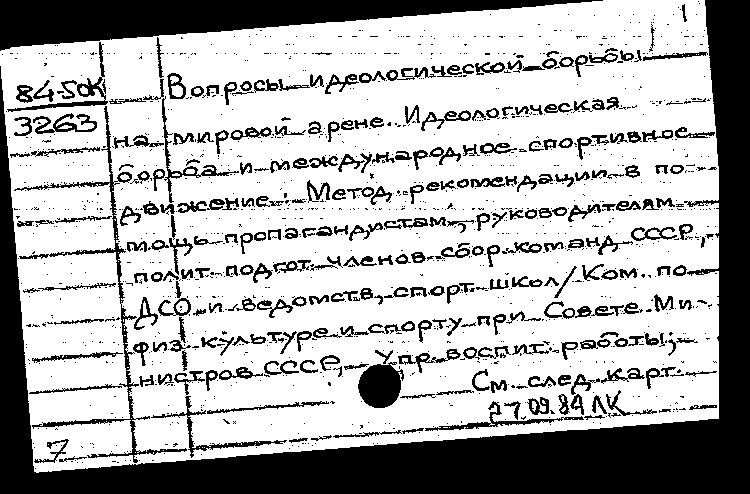 1
84-5OK Вопросы идеологической борьбы
3263 на мировой арене. Идеологическая
борьба и международное спортивное
движение: Метод. рекомендации в по-
мощь пропагандистам, руководителям
полит. подгот. членов сбор. команд СССР,
ДСО и ведомств, спорт. школ/Ком. по
физ. культуре и спорту при Совете Ми-
нистров СССР, Упр. воспит. работы;-
См. след. карт.
27.09.84 ЛК
7